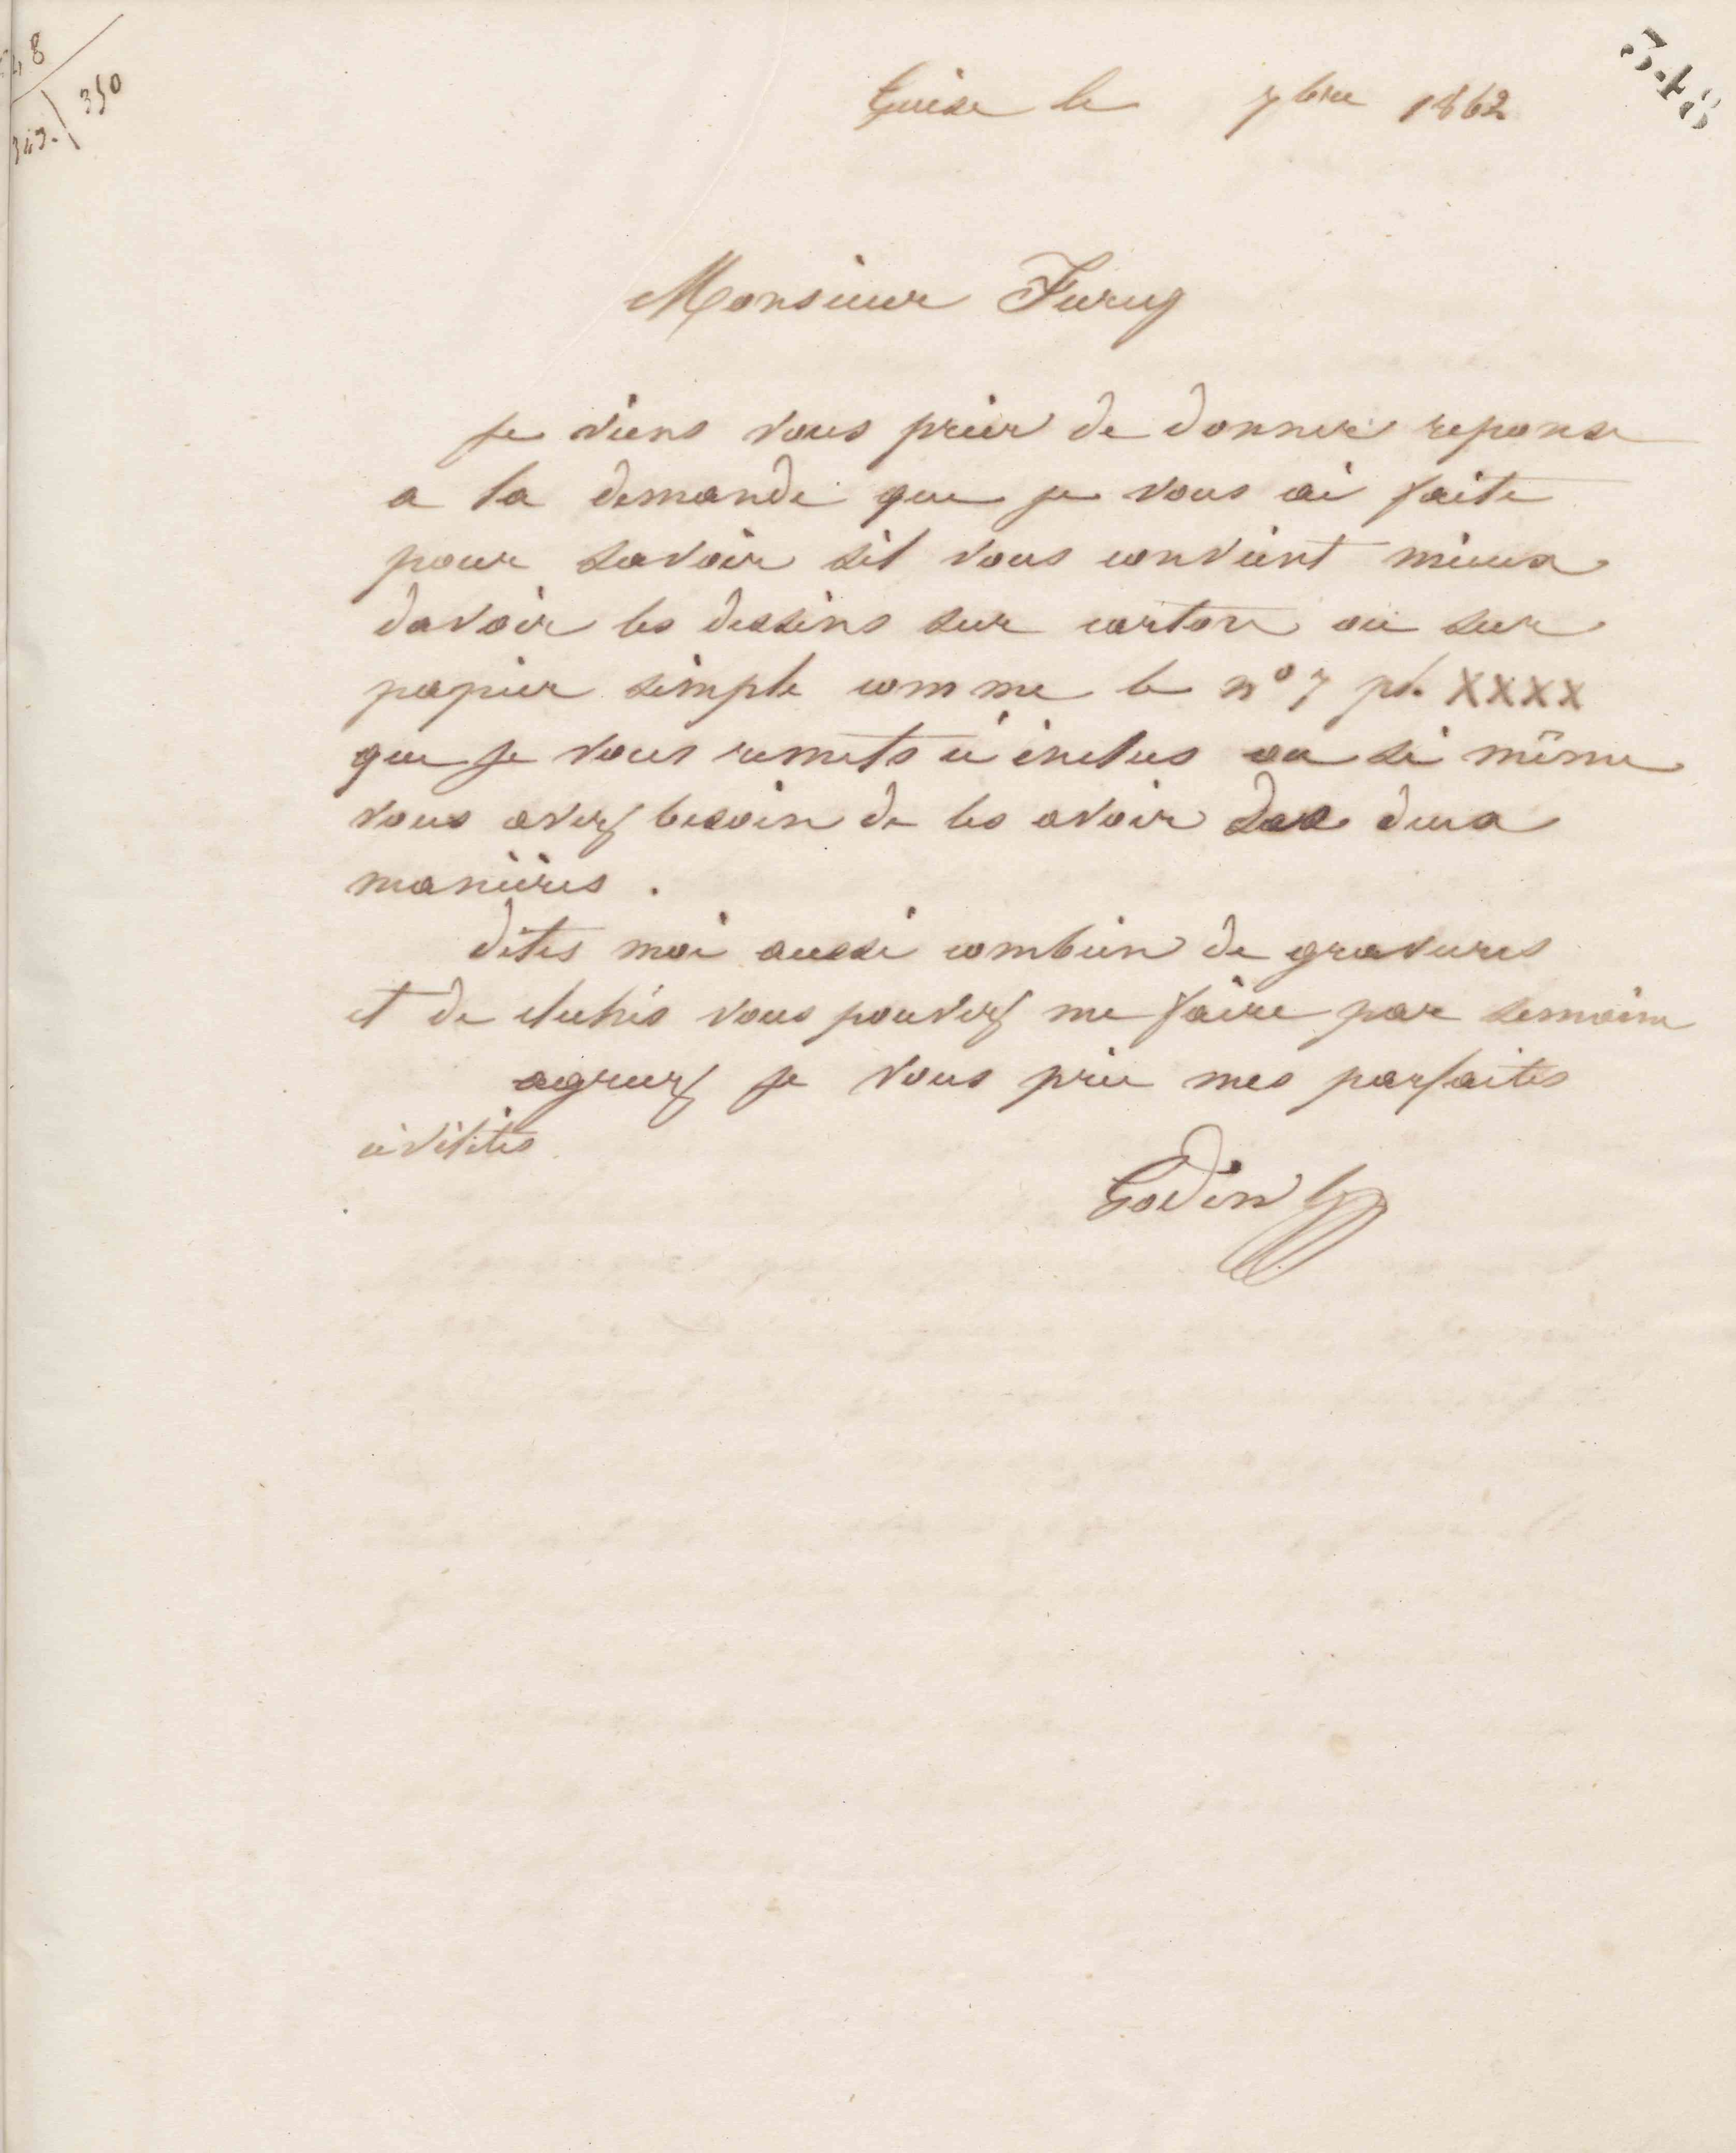 348
349. 350
348
Guise le 7bre 1862
Monsieur Furey
je viens vous prier de donner reponse
a la demande que je vous ai faite
pour savoir sil vous convient mieux
davoir les dessins sur carton ou sur
papier simple comme le n° 7 pl. XXXX
que je vous remets ci inclus ou si même
vous avez besoin de les avoir des deux
manières.
dites moi aussi combien de gravures
et de clichés vous pouvez me faire par semaine
agreez je vous prie mes parfaites
civilités
Godin